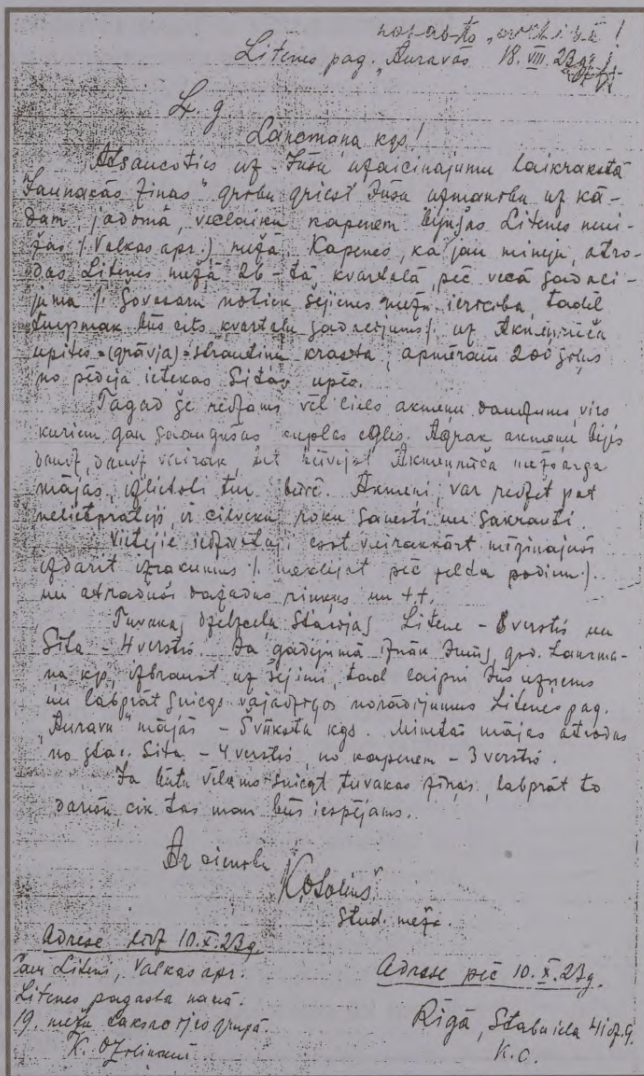 Litenes pag. „Auravās 18. VIII. 23g.
L. g
Lancmaņa kgs!
Atsaucoties uz Jūsu uzaicinajumu laikrakstā
Jaunakās Ziņas" gribu griest Jūsu uzmanību uz kā-
dam, jādomā, veclaiku kapenem bijušās Litenes mui-
žas /. Valkas apr.) mežā. Kapenes, kā jau mineju, atro-
das Litenes mežā 26-tā kvartalā pēc vecā sadali-
juma /. šovasar notiek šejienes mežu ierīcība, tadēļ
turpmak būs cits kvartalu sadalijums/. uz Akmeņrūča
upites =(grāvja)= strautiņa krasta, apmēram 200 soļus
no pēdējā ietekas Sitas upē.
Tagad še redzams vēl liels akmeņu daudzums, virs
kuriem gan saaugušas kuplas egles. Agrak akmeņu bijis
daudz, daudz vairak, bet būvejot Akmeņrūča mežsarga
mājas, izlietoti tur būvē. Akmeņi, var redzet pat
nelietpratejs, ir cilveku roku sanesti un sakrauti.
Vietejie iedzivotaji esot vairakkārt mēģinajuši
izdarit izrakumus /. meklejot pēc zelda podiem).
un atraduši dažadas rinkas un tt.
Tuvakās dzelzceļa stacijas Litene - 8 verstis un
Sita - 4 verstis. Ja gadijumā Jums, god. Lancma-
ņa kgs, izbraukt uz šejieni, tad laipni Jūs uzņems
un labprāt sniegs vajadzigos norādijumus Litenes pag.
„Auravu" mājās - Švūksta kgs. Minetās mājas atrodas
no stac. Sita - 4 verstis, no kapenem - 3 verstis.
Ja būtu vēlams sniegt tuvakas ziņas, labprāt to
darišu, cik tas man būs iespējams.
Ar cieņibu
K. Ozoliņš
Stud. mežz.
Adrese līdz 10. X. 23g.
Caur Liteni, Valkas apr.
Litenes pagasta namā.
19. mežu taksacijas grupā.
K. Ozoliņam
Adrese pēc 10. X. 23g.
Rīgā, Stabu iela
K. O.